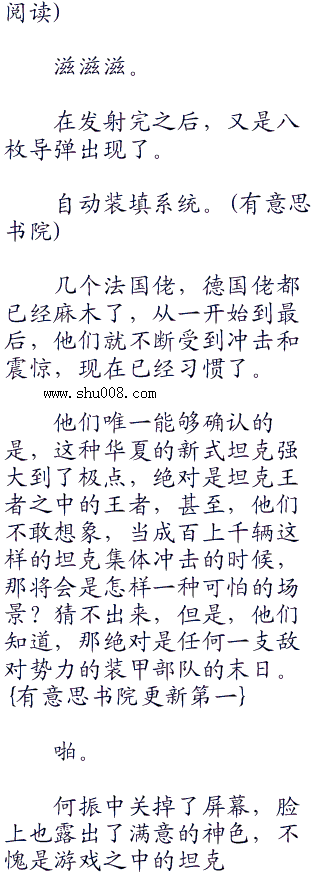 阅读)
滋滋滋。
在发射完之后，又是八
枚导弹出现了。
自动装填系统。(有意思
书院)
几个法国佬，德国佬都
已经麻木了，从一开始到最
后，他们就不断受到冲击和
震惊，现在已经习惯了。
www.shu008.com
他们唯一能够确认的
是，这种华夏的新式坦克强
大到了极点，绝对是坦克王
者之中的王者，甚至，他们
不敢想象，当成百上千辆这
样的坦克集体冲击的时候，
那将会是怎样一种可怕的场
景？猜不出来，但是，他们
知道，那绝对是任何一支敌
对势力的装甲部队的末日。
{有意思书院更新第一}
啪。
何振中关掉了屏幕，脸
上也露出了满意的神色，不
愧是游戏之中的坦克